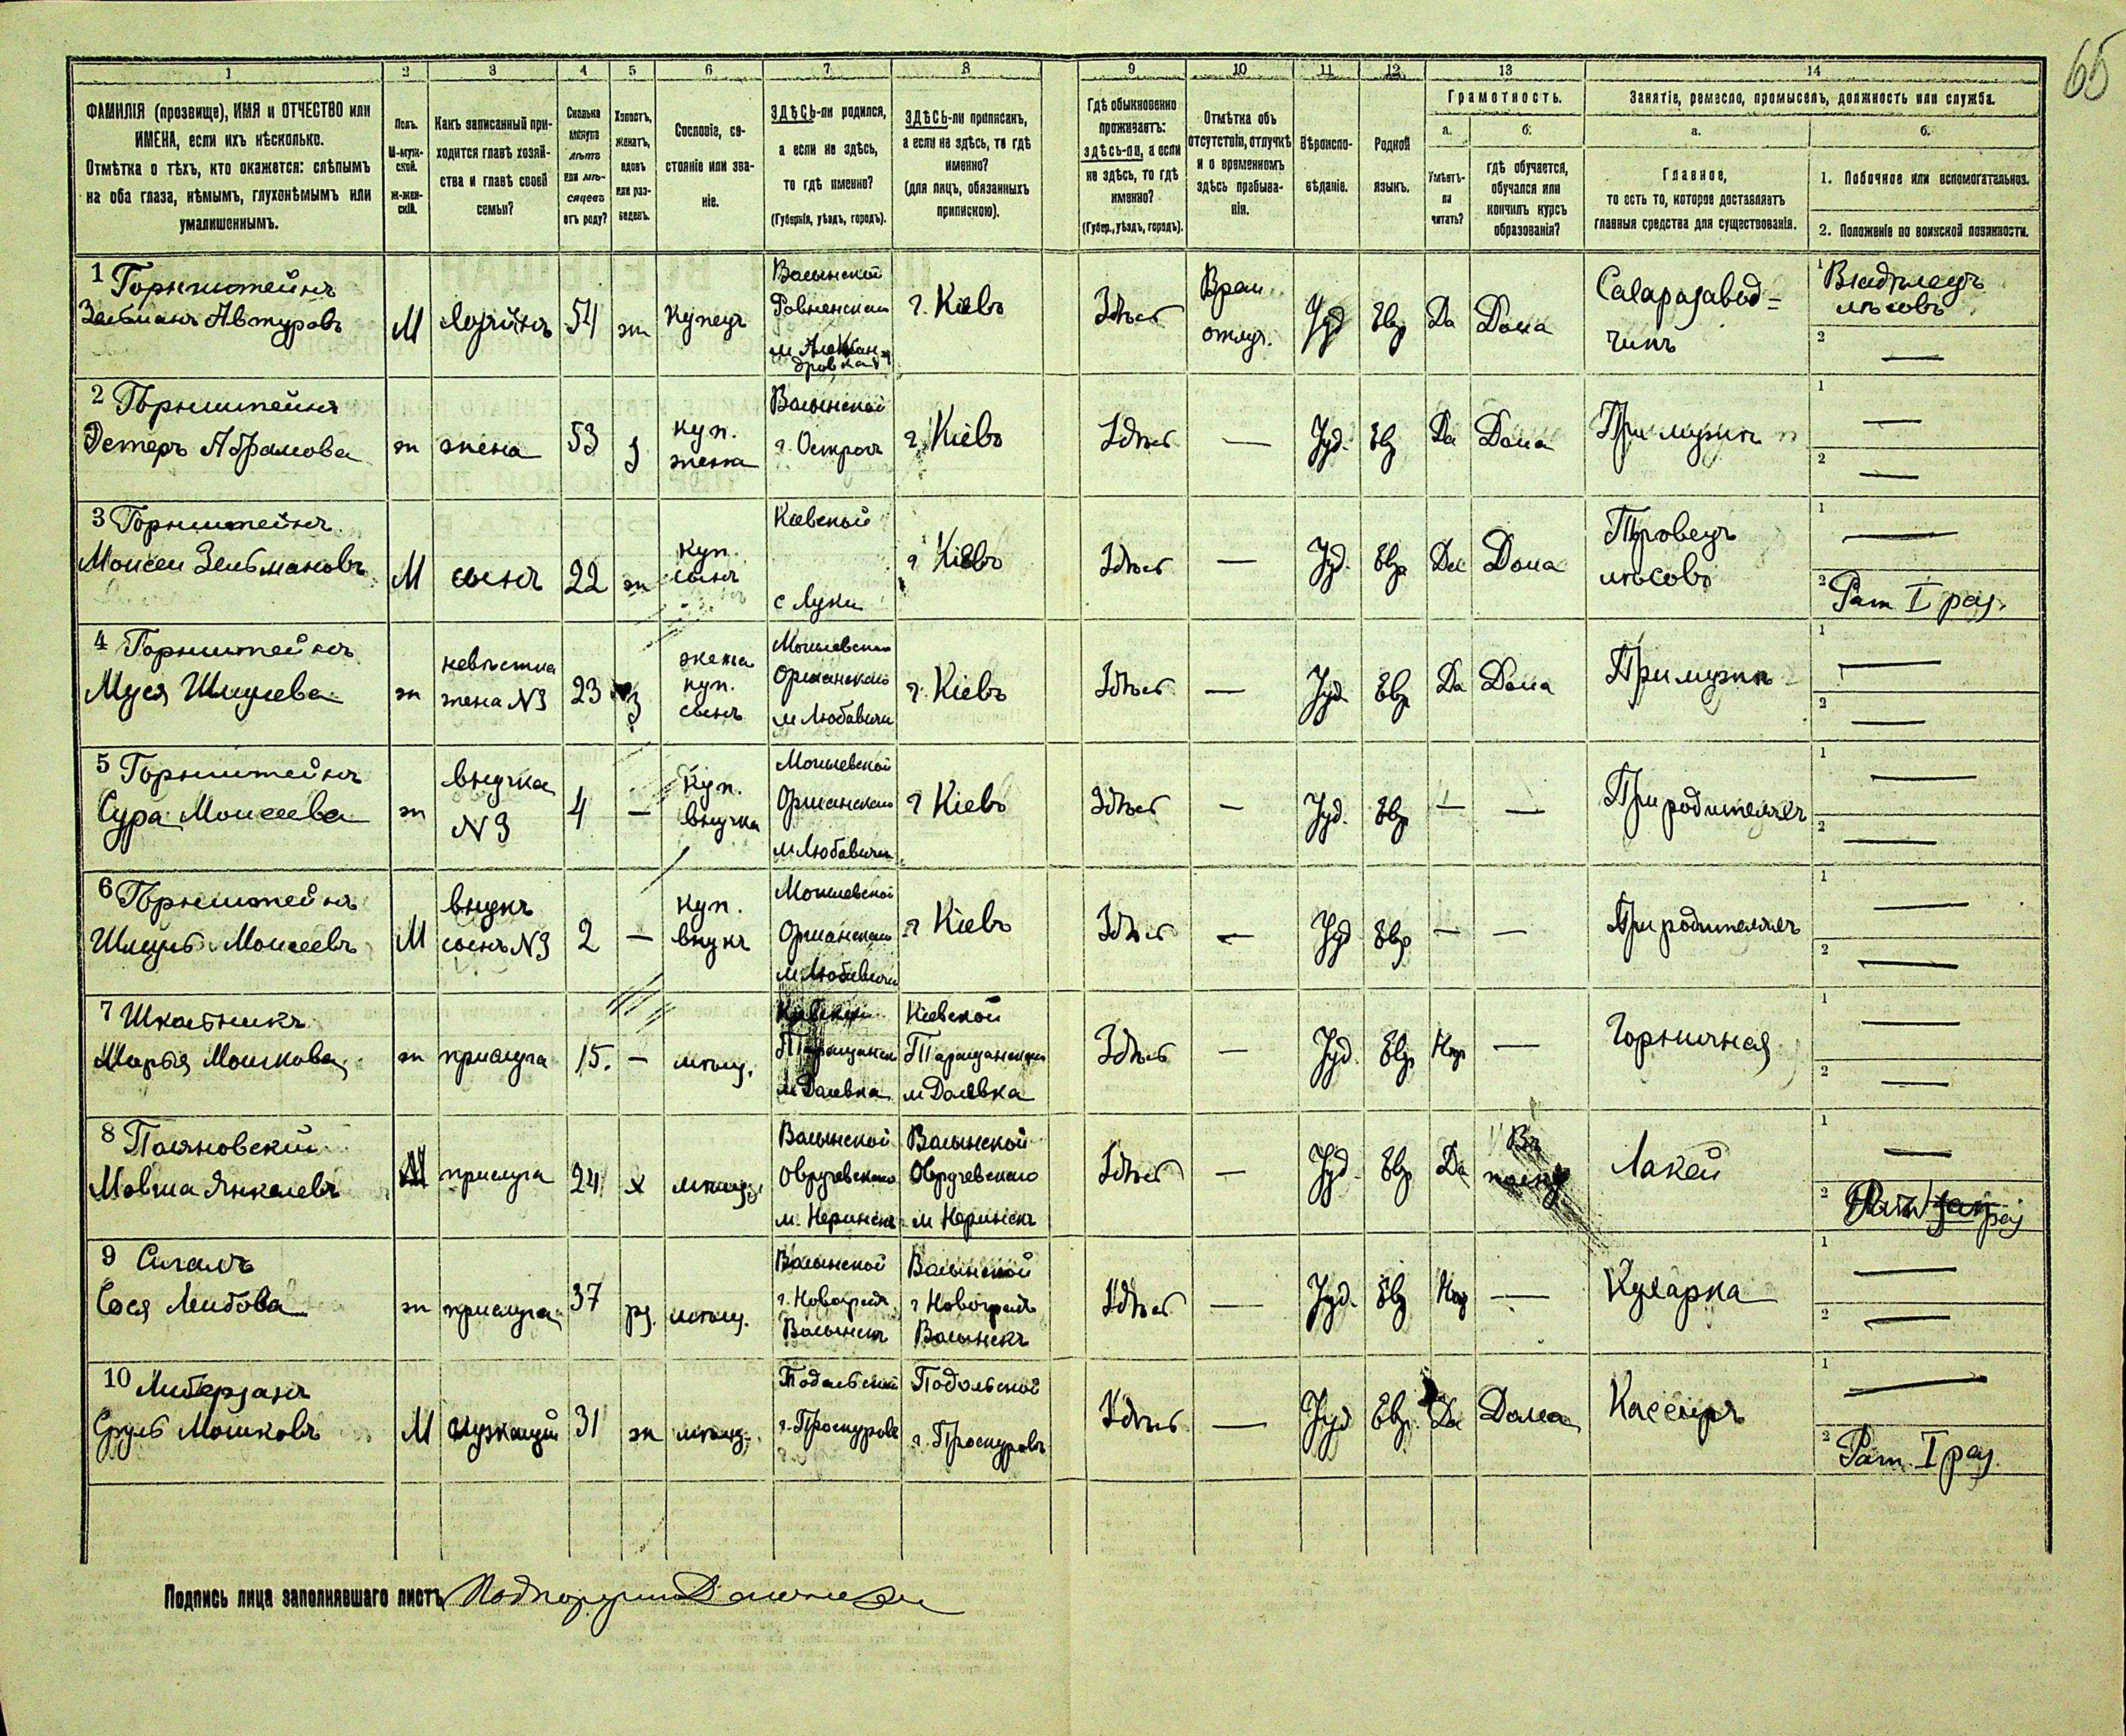 65
1 2 3 4 5 6 7 8 9 10 11 12 13 14
ФАМИЛІЯ (прозвище), ИМЯ и ОТЧЕСТВО или
ИМЕНА, если ихъ нѣсколько.
Отмѣтка о тѣхъ, кто окажется: слѣпымъ
на оба глаза, нѣмымъ, глухонѣмымъ или
умалишеннымъ.
Полъ.
М-муж-
ской.
Ж-жен-
скій.
Какъ записанный при-
ходится главѣ хозяй-
ства и главѣ своей
семьи?
Сколько
минуло
лѣтъ
или мѣ-
сяцевъ
отъ роду?
Холостъ,
женатъ,
вдовъ
или раз-
веденъ.
Сословіе, со-
стояніе или зва-
ніе.
ЗДѢСЬ-ли родился,
а если не здѣсь,
то гдѣ именно?
(Губернія, уѣздъ, городъ).
ЗДѢСЬ-ли приписанъ,
а если не здѣсь, то гдѣ
именно?
(для лицъ, обязанныхъ
припискою).
Гдѣ обыкновенно
проживаетъ:
здѣсь-ли, а если
не здѣсь, то гдѣ
именно?
(Губер., уѣздъ, городъ).
Отмѣтка объ
отсутствіи, отлучкѣ
и о временномъ
здѣсь пребыва-
ніи.
Вѣроиспо-
вѣданіе.
Родной
языкъ.
Грамотность.
а.
Умѣетъ-
ли
читать?
б.
гдѣ обучается,
обучался или
кончилъ курсъ
образованія?
Занятіе, ремесло, промыселъ, должность или служба.
а.
Главное,
то есть то, которое доставляетъ
главныя средства для существованія.
б.
1. Побочное или вспомогательное.
2. Положеніе по воинской повинности.
1 Горнштейнъ
Зельманъ
М
хозяинъ
54
ж
Купецъ
Волынской
Ровненскаго
м Алексан-
дровка
г. Кіевъ
Здѣсь
Врем.
отлуч.
Іуд
Евр
Да
Дома
Сахарозавод=
чикъ
1 Владѣлецъ
лѣсовъ
2 —
2 Горнштейнъ
Эстеръ Абрамова
ж
жена
53
з
куп.
жена
Волынской
г. Острогъ
г. Кіевъ
Здѣсь
—
Іуд.
Евр
Да
Дома
При мужѣ
1 —
2 —
3 Горнштейнъ
Моисей Зельмановъ
М
сынъ
22
ж
куп.
сынъ
Кіевской
с Луки
г Кіевъ
Здѣсь
—
Іуд.
Евр
Да
Дома
Торговецъ
лѣсовъ
1 —
2 Рат I раз.
4 Горнштейнъ
Муся Шмулева
ж
невѣстка
жена №3
23
з
жена
куп.
сына
Могилевской
Оршанскаго
м Любавичи
г. Кіевъ
Здѣсь
—
Іуд
Евр
Да
Дома
При мужѣ
1 —
2 —
5 Горнштейнъ
Сура Моисеева
ж
внучка
№3
4
—
куп.
внучка
Могилевской
Оршанскаго
м Любавичи
г Кіевъ
Здѣсь
—
Іуд.
Евр
—
—
При родителяхъ
1 —
2 —
6 Горнштейнъ
Шмуль Моисеевъ
М
внукъ
сынъ №3
2
—
куп.
внукъ
Могилевской
Оршанскаго
м Любавичи
г Кіевъ
Здѣсь
—
Іуд
Евр
—
—
При родителяхъ
1 —
2 —
7 Школьникъ
Марья Мошкова
ж
прислуга
15.
—
мѣщ.
Кіевской
Таращанск
м
Кіевской
Таращанскаго
м
Здѣсь
—
Іуд.
Евр
Нѣт
—
Горничная
1 —
2 —
8 Поляновскій
Мовша Янкелевъ
М
прислуга
24
х
мѣщ.
Волынской
Овручевскаго
м. Норинскъ
Волынской
Овручевскаго
м Норинскъ
Здѣсь
—
Іуд.
Евр
Да
Въ
Лакей
1 —
2
9
Сося Лейбова
ж
прислуга
37
рз.
мѣщ.
Волынской
г. Новоград
Волынскъ
Волынской
г Новоградъ
Волынскъ
Здѣсь
—
Іуд.
Евр
Нѣт
—
Кухарка
1 —
2 —
10 Либерзонъ
Сруль Мошковъ
М
служащій
31
ж
мѣщ.
Подольской
г. Проскуровъ
Подольской
г. Проскуровъ
Здѣсь
—
Іуд
Евр.
Да
Дома
Кассиръ
1 —
2 Рат. I раз.
Подпись лица заполнявшаго листъ Подпоручикъ